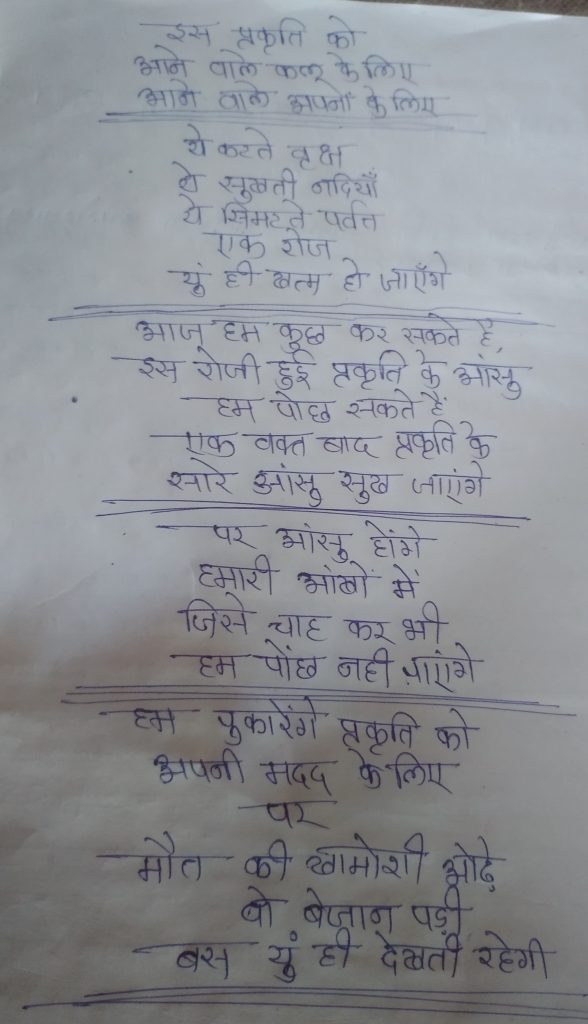 इस प्रकृति को
आने वाले कल के लिए
आने वाले अपनों के लिए
ये कटते वृक्ष
ये सुखती नदियाँ
ये सिमटते पर्वत
एक रोज
युं ही खत्म हो जाएँगे
आज हम कुछ कर सकते हैं,
इस रोती हुई प्रकृति के आंसु
हम पोछ सकते हैं
एक वक्त बाद प्रकृति के
सारे आंसु सुख जाएंगे
पर आंसु होंगे
हमारी आंखों में
जिसे चाह कर भी
हम पोंछ नही पाएंगे
हम पुकारेंगे प्रकृति को
अपनी मदद के लिए
पर
मौत की खामोशी ओढ़े
वो बेजान पड़ी
बस युं ही देखती रहेगी